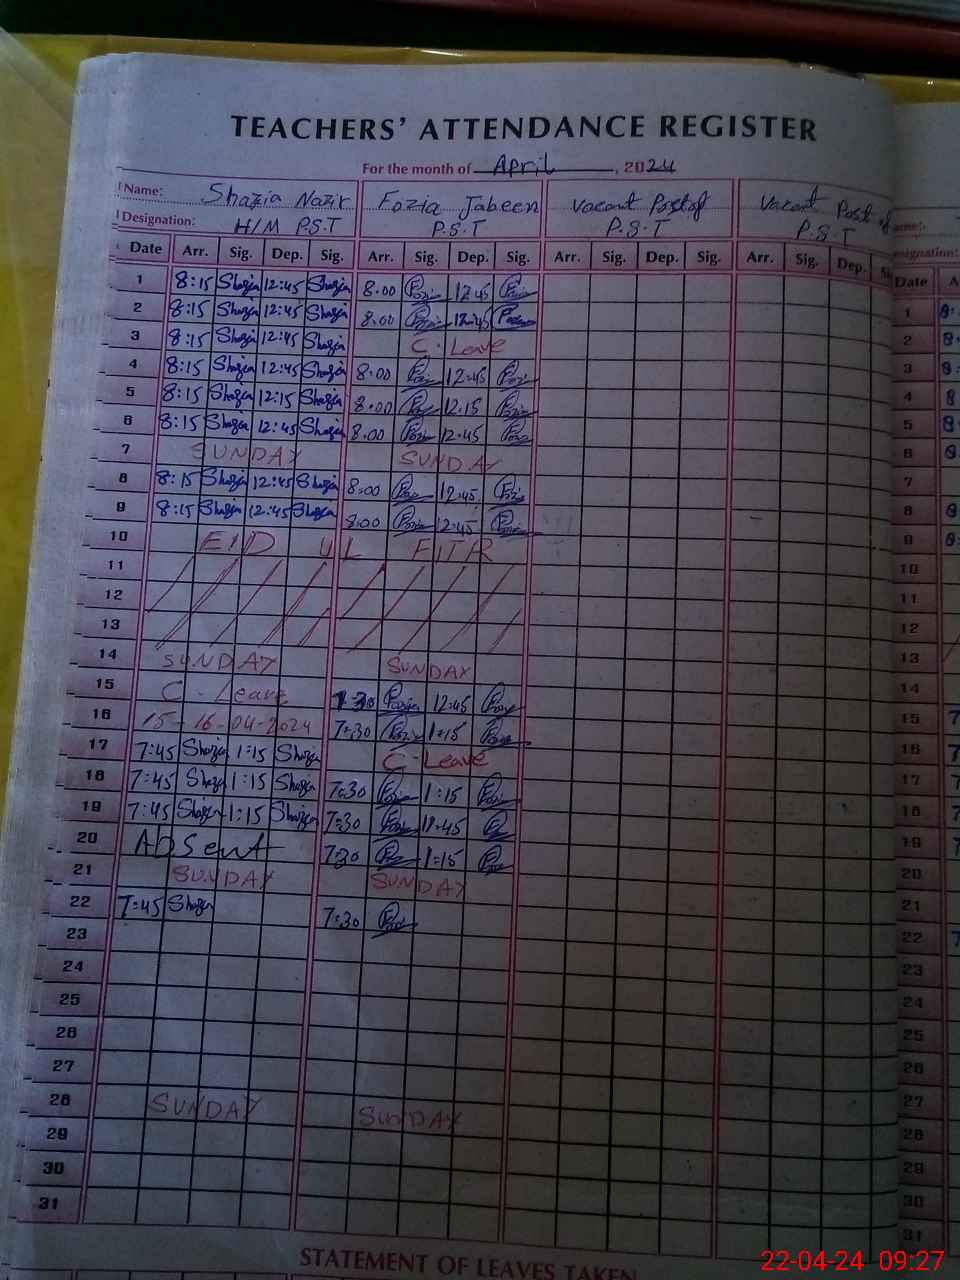 TEACHERS' ATTENDANCE REGISTER
For the month of April, 2024
Name: Shazia Nazir Fozia Jabeen Vacant Post of Vacant Post of
Designation: H/M P.S.T P.S.T P.S.T P.S.T esignation:
Date Arr. Sig. Dep. Sig. Arr. Sig. Dep. Sig. Arr. Sig. Dep. Sig. Arr. Sig. Dep. Date
1 8:15 Shazia 12:45 Shazia 8.00 Fozia 12.45 Fozia 1
2 8:15 Shazia 12:45 Shazia 8.00 Fozia 12.45 Fozia 2
3 8:15 Shazia 12:45 Shazia C. Leave 3
4 8:15 Shazia 12:45 Shazia 8.00 Fozia 12.45 Fozia 4
5 8:15 Shazia 12:15 Shazia 8.00 Fozia 12.15 Fozia 5
6 8:15 Shazia 12:45 Shazia 8.00 Fozia 12.45 Fozia 6
7 SUNDAY SUNDAY 7
8 8:15 Shazia 12:45 Shazia 8.00 Fozia 12.45 Fozia 8
9 8:15 Shazia 12:45 Shazia 8.00 Fozia 12.45 Fozia 9
10 EID UL FITR 10
11 11
12 12
13 13
14 SUNDAY SUNDAY 14
15 C. Leave 7.30 Fozia 12.45 Fozia 15
16 15-16-04-2024 7:30 Fozia 1:15 Fozia 16
17 7:45 Shazia 1:15 Shazia C. Leave 17
18 7:45 Shazia 1:15 Shazia 7:30 Fozia 1:15 Fozia 18
19 7:45 Shazia 1:15 Shazia 7:30 Fozia Fozia 19
20 Absent 7:30 Fozia 1:15 Fozia 20
21 SUNDAY SUNDAY 21
22 7:45 Shazia 7:30 Fozia 22
23 23
24 24
25 25
26 26
27 27
28 SUNDAY SUNDAY 28
29 29
30 30
31 31
STATEMENT OF LEAVES TAKEN
22-04-24 09:27